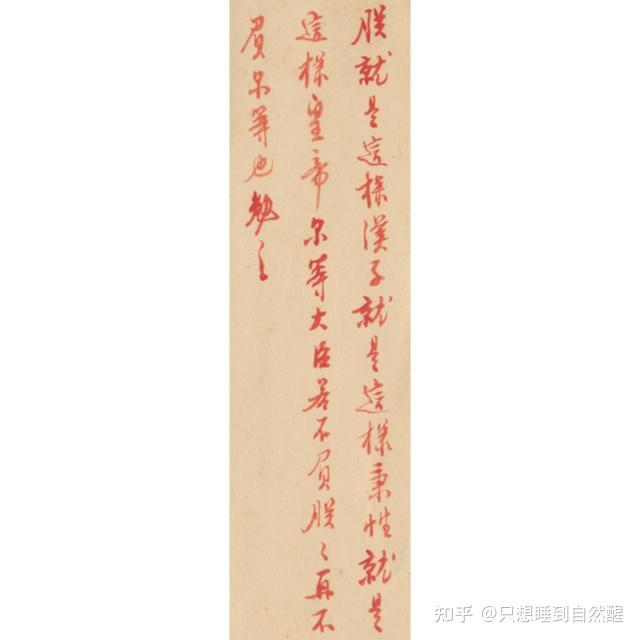 朕就是這樣漢子就是這樣秉性就是
這樣皇帝尔等大臣若不負朕〻再不
負尔等也勉之
知乎 @只想睡到自然醒